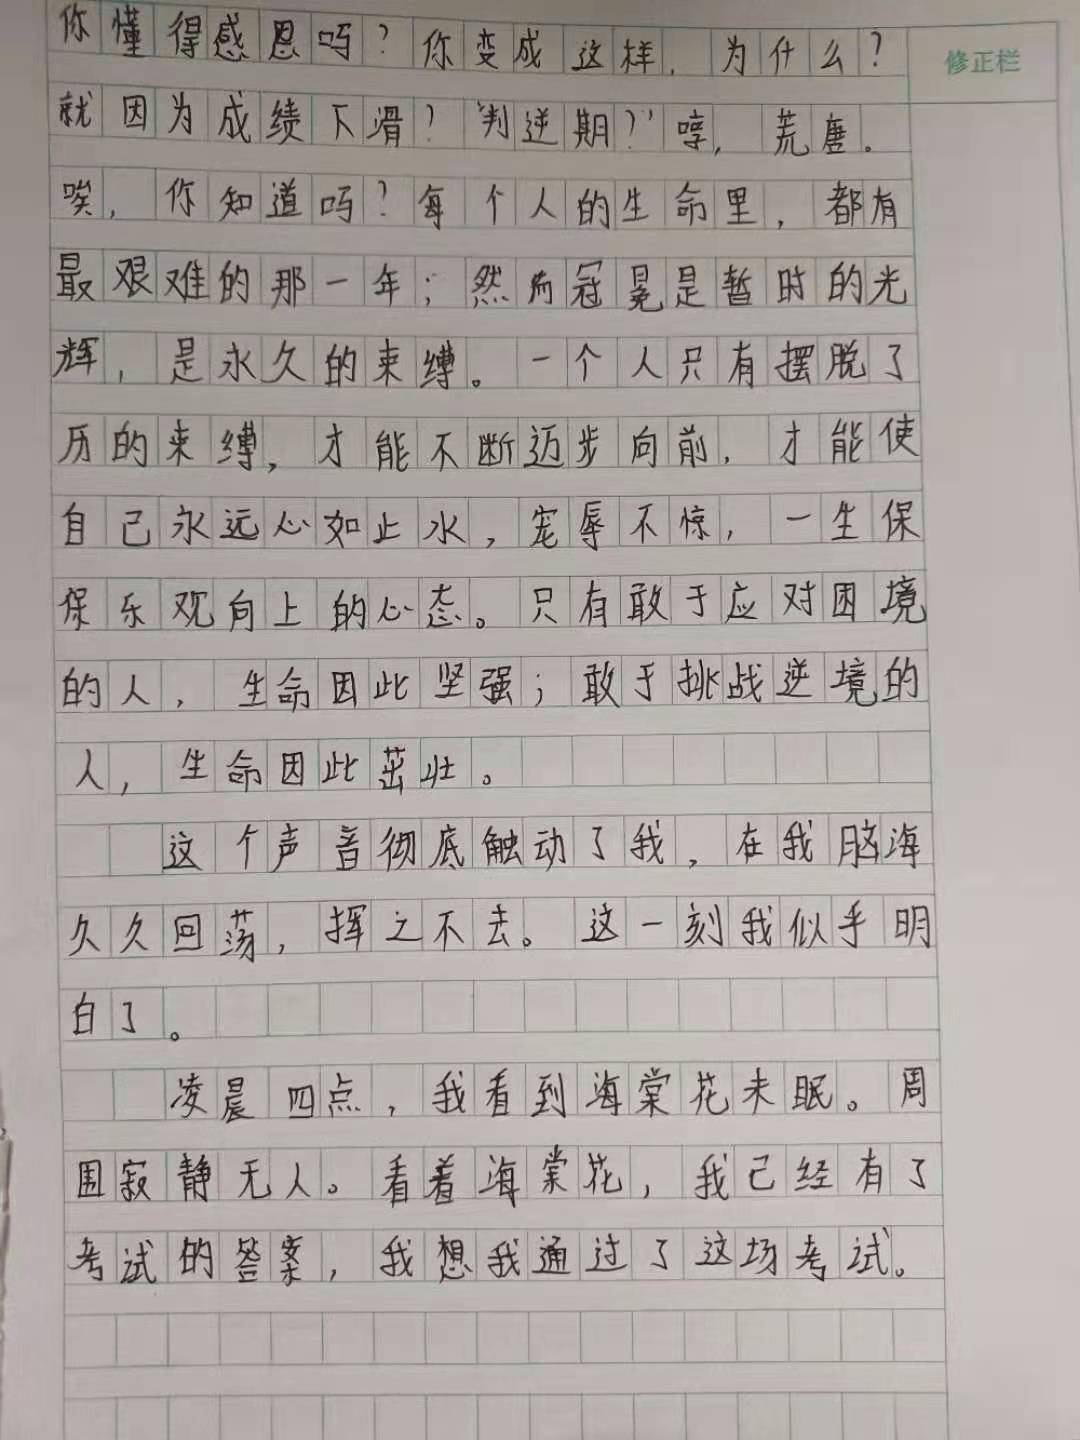 你懂得感恩吗?你变成这样,为什么?
修正栏
就因为成绩下滑?“判逆期?”哼,荒唐。
唉,你知道吗?每个人的生命里,都有
最艰难的那一年;然而冠冕是暂时的光
辉,是永久的束缚。一个人只有摆脱了
历的束缚,才能不断迈步向前,才能使
自己永远心如止水,宠辱不惊,一生保
保乐观向上的心态。只有敢于应对困境
的人,生命因此坚强;敢于挑战逆境的
人,生命因此茁壮。
这个声音彻底触动了我,在我脑海
久久回荡,挥之不去。这一刻我似乎明
白了。
凌晨四点,我看到海棠花未眠。周
围寂静无人。看着海棠花,我已经有了
考试的答案,我想我通过了这场考试。